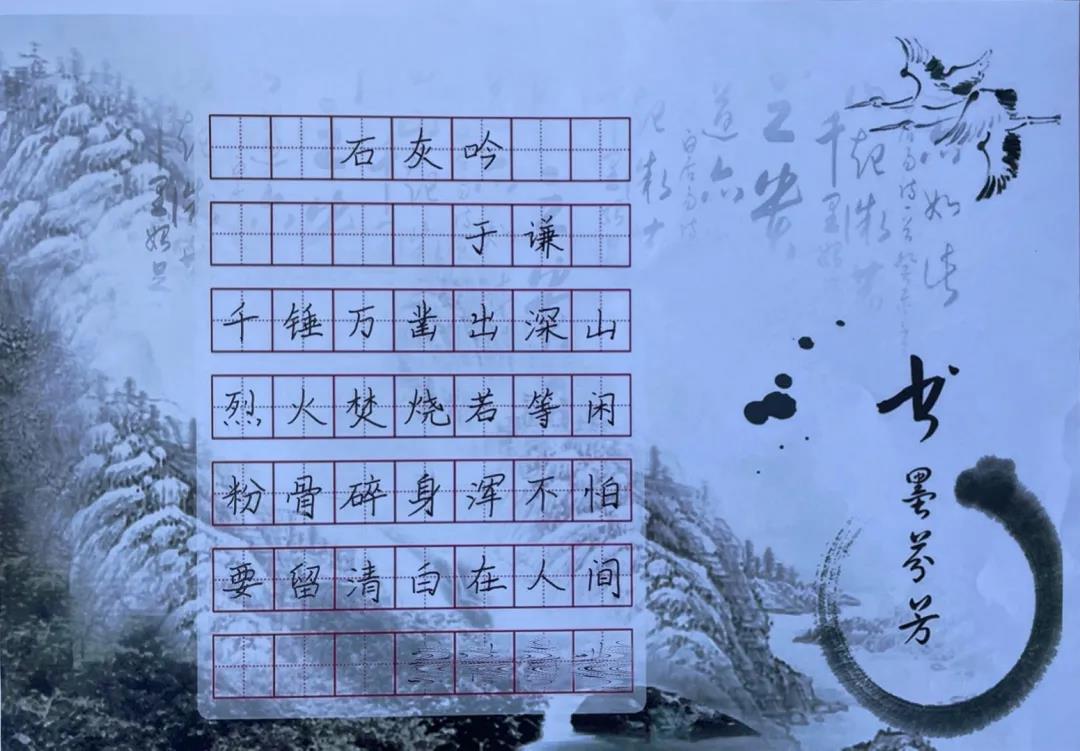 石灰吟
于谦
千锤万凿出深山
烈火焚烧若等闲
粉骨碎身浑不怕
要留清白在人间
书墨芬芳